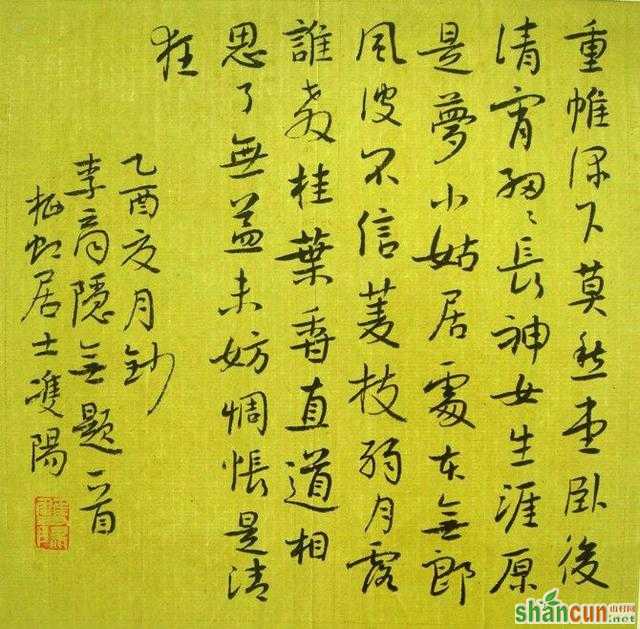 重帷深下莫愁堂臥後
清宵細々長神女生涯原
是夢小姑居處本無郎
風波不信菱枝弱月露
誰教桂葉香直道相
思了無益未妨惆悵是清
狂
乙酉夏月鈔
李商隱無題一首
居士雙陽
shancun
山村网
.net